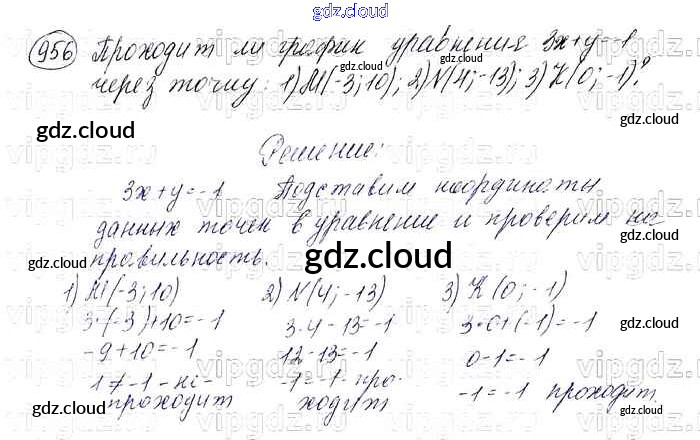 gdz.cloud
956 Проходит ли график уравнения 3x+y=-1
через точку: 1) M(-3;10); 2) N(4;-13); 3) K(0;-1)?
Решение:
3x+y=-1 Подставим координаты
данных точек в уравнение и проверим на
правильность.
1) M(-3;10) 2) N(4;-13) 3) K(0;-1)
3·(-3)+10=-1 3·4-13=-1 3·0+(-1)=-1
-9+10=-1 12-13=-1 0-1=-1
1≠-1 - не- -1=-1 - про- -1=-1 проходит
проходит ходит
gdz.cloud
gdz.cloud
gdz.cloud
gdz.cloud
gdz.cloud
gdz.cloud
gdz.cloud
gdz.cloud
gdz.cloud
gdz.cloud